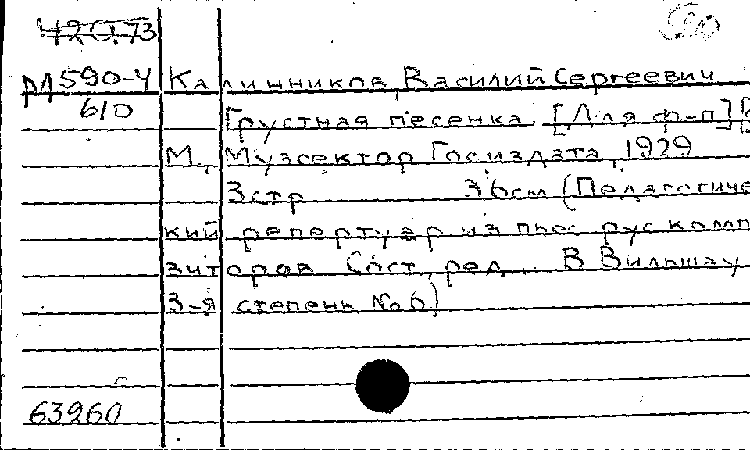 42073
М590-4 Калинников, Василий Сергеевич
610 Грустная песенка [Для ф-п]
М., Музсектор Госиздата, 1929
3 стр 36см (Педагогичес
кий репертуар из пьес рус комп
зиторов Сост., ред. В Вильшау
3-я степень №6)
63960